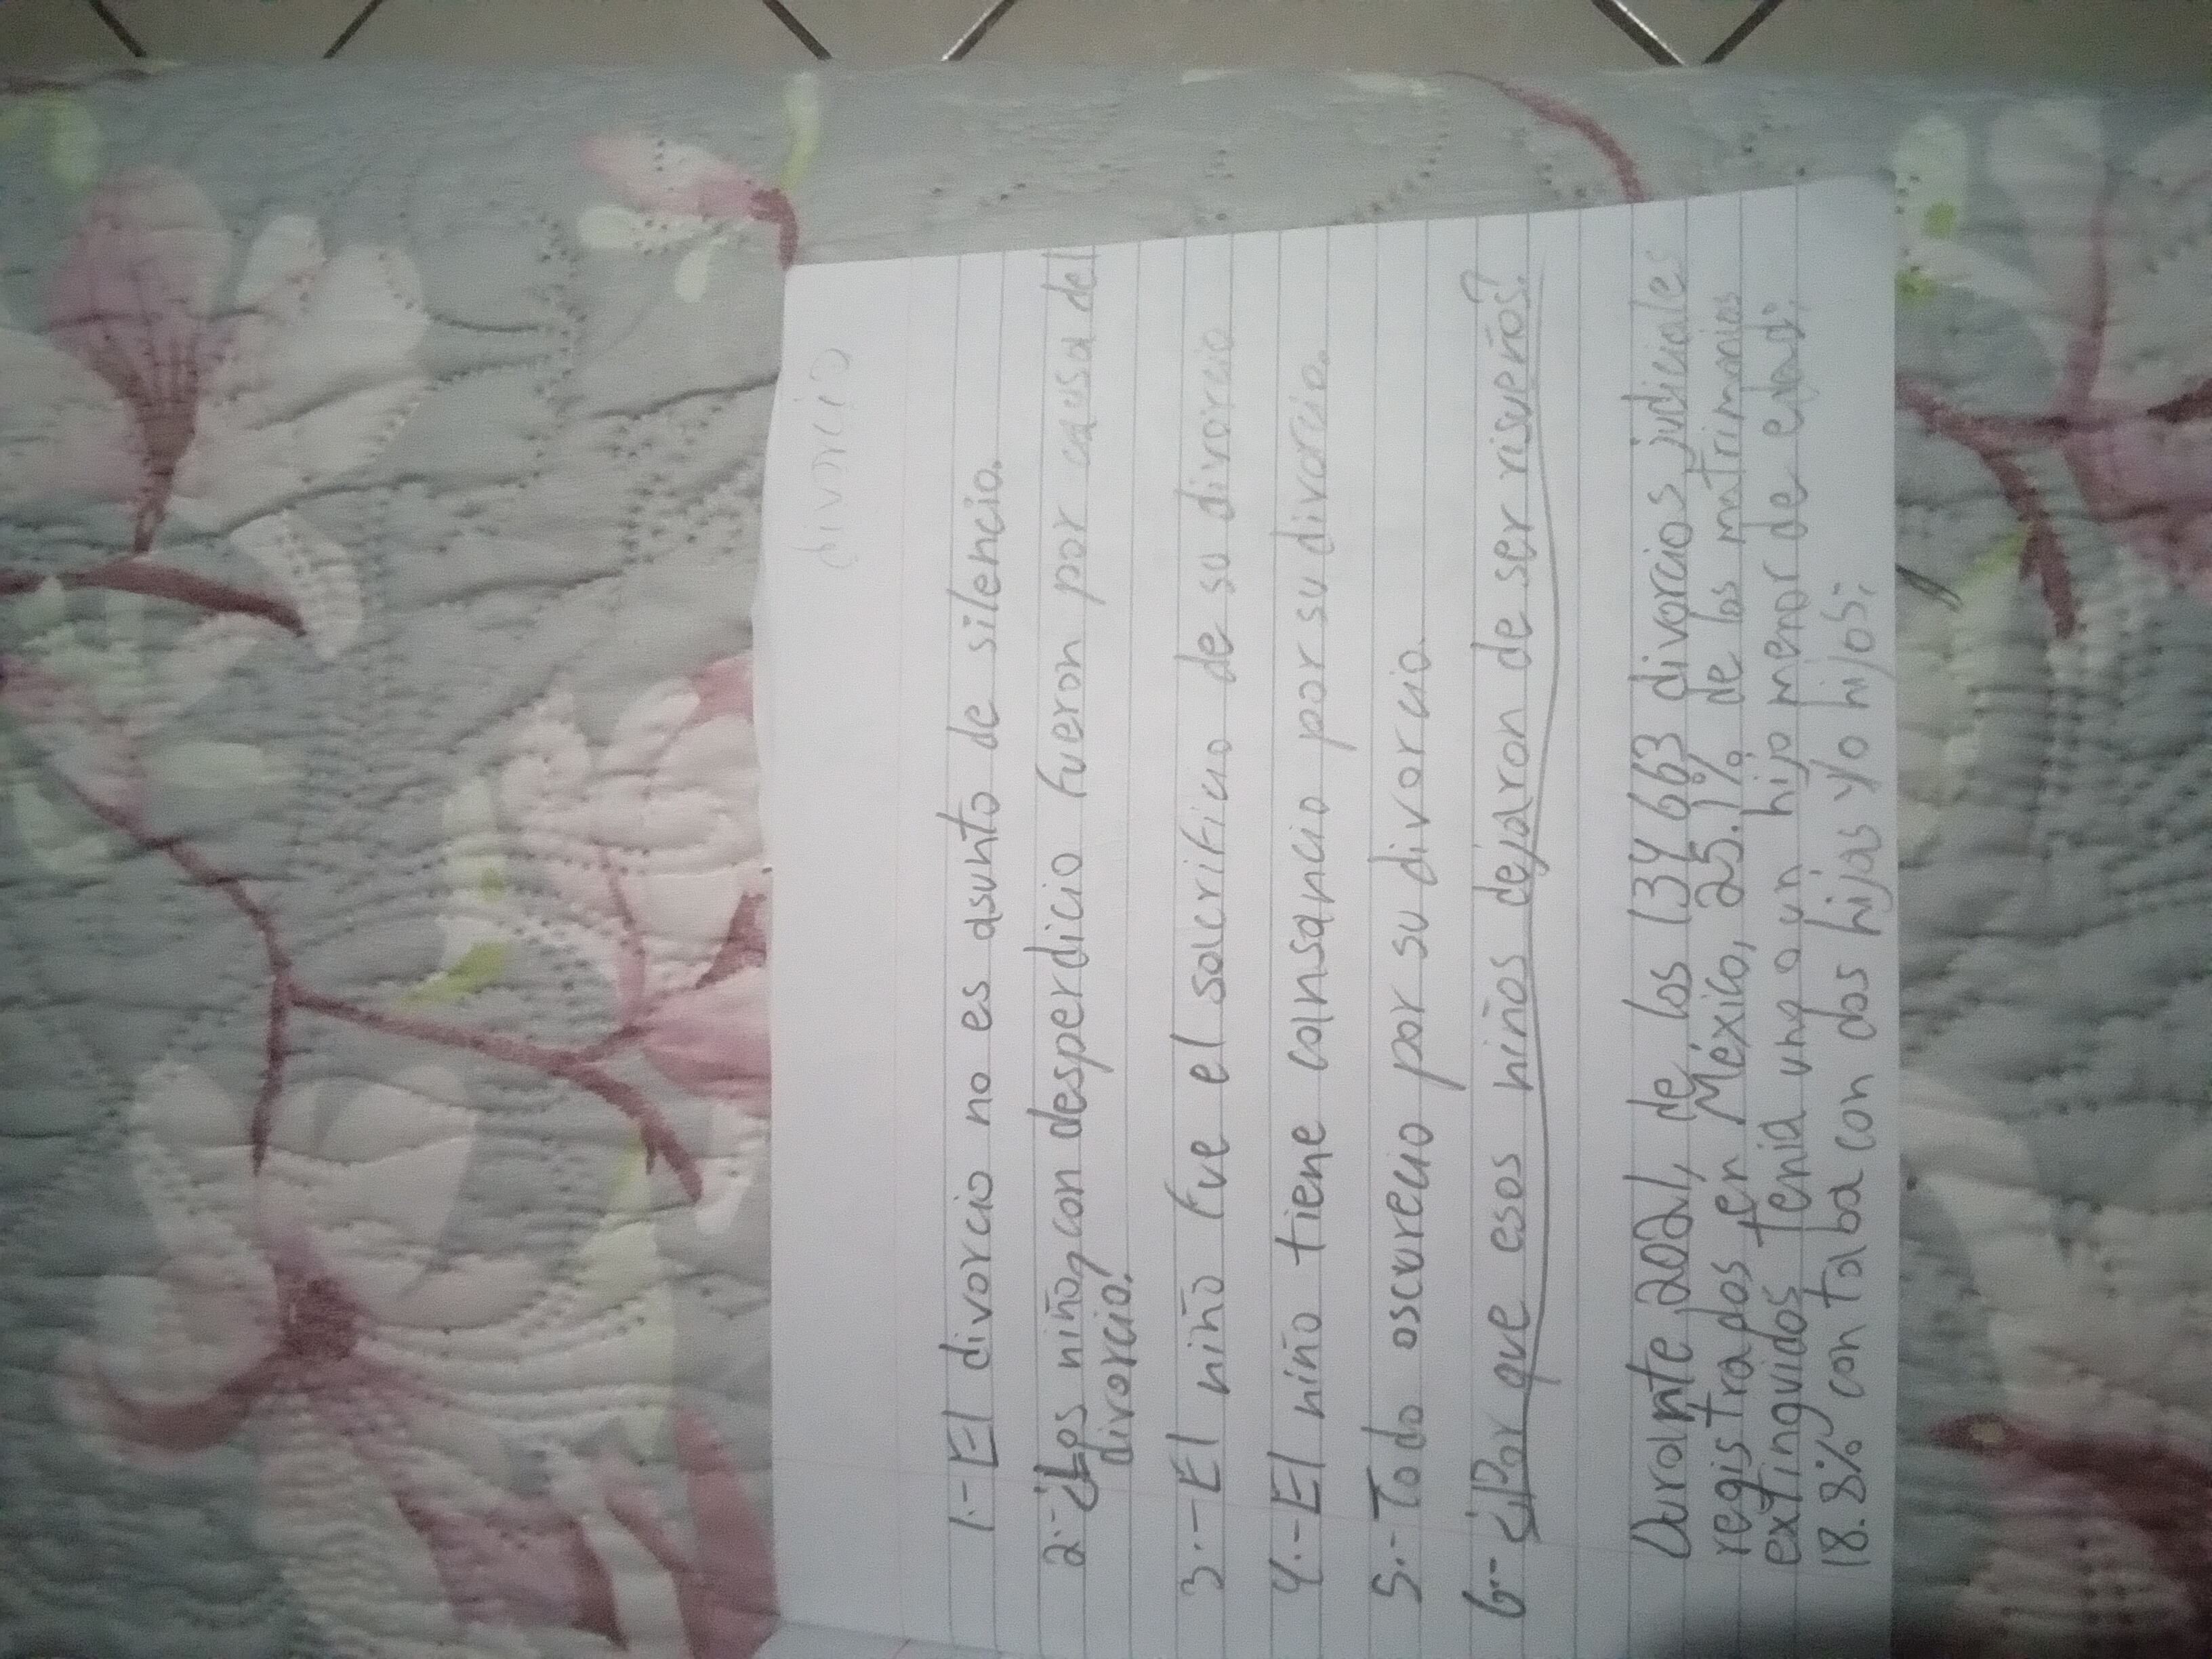 divorcio
1.-El divorcio no es asunto de silencio.
2.-¿Los niños con desperdicio fueron por causa del
divorcio?
3.-El niño fue el sacrificio de su divorcio
4.-El niño tiene cansancio por su divorcio.
5.-Todo oscurecio por su divorcio.
6.-¿Por que esos niños dejaron de ser risueños?
Durante 2021, de los 134 663 divorcios judiciales
registrados en México, 25.1% de los matrimonios
extinguidos tenia una o un hijo menor de edad;
18.8% contaba con dos hijas y/o hijos;